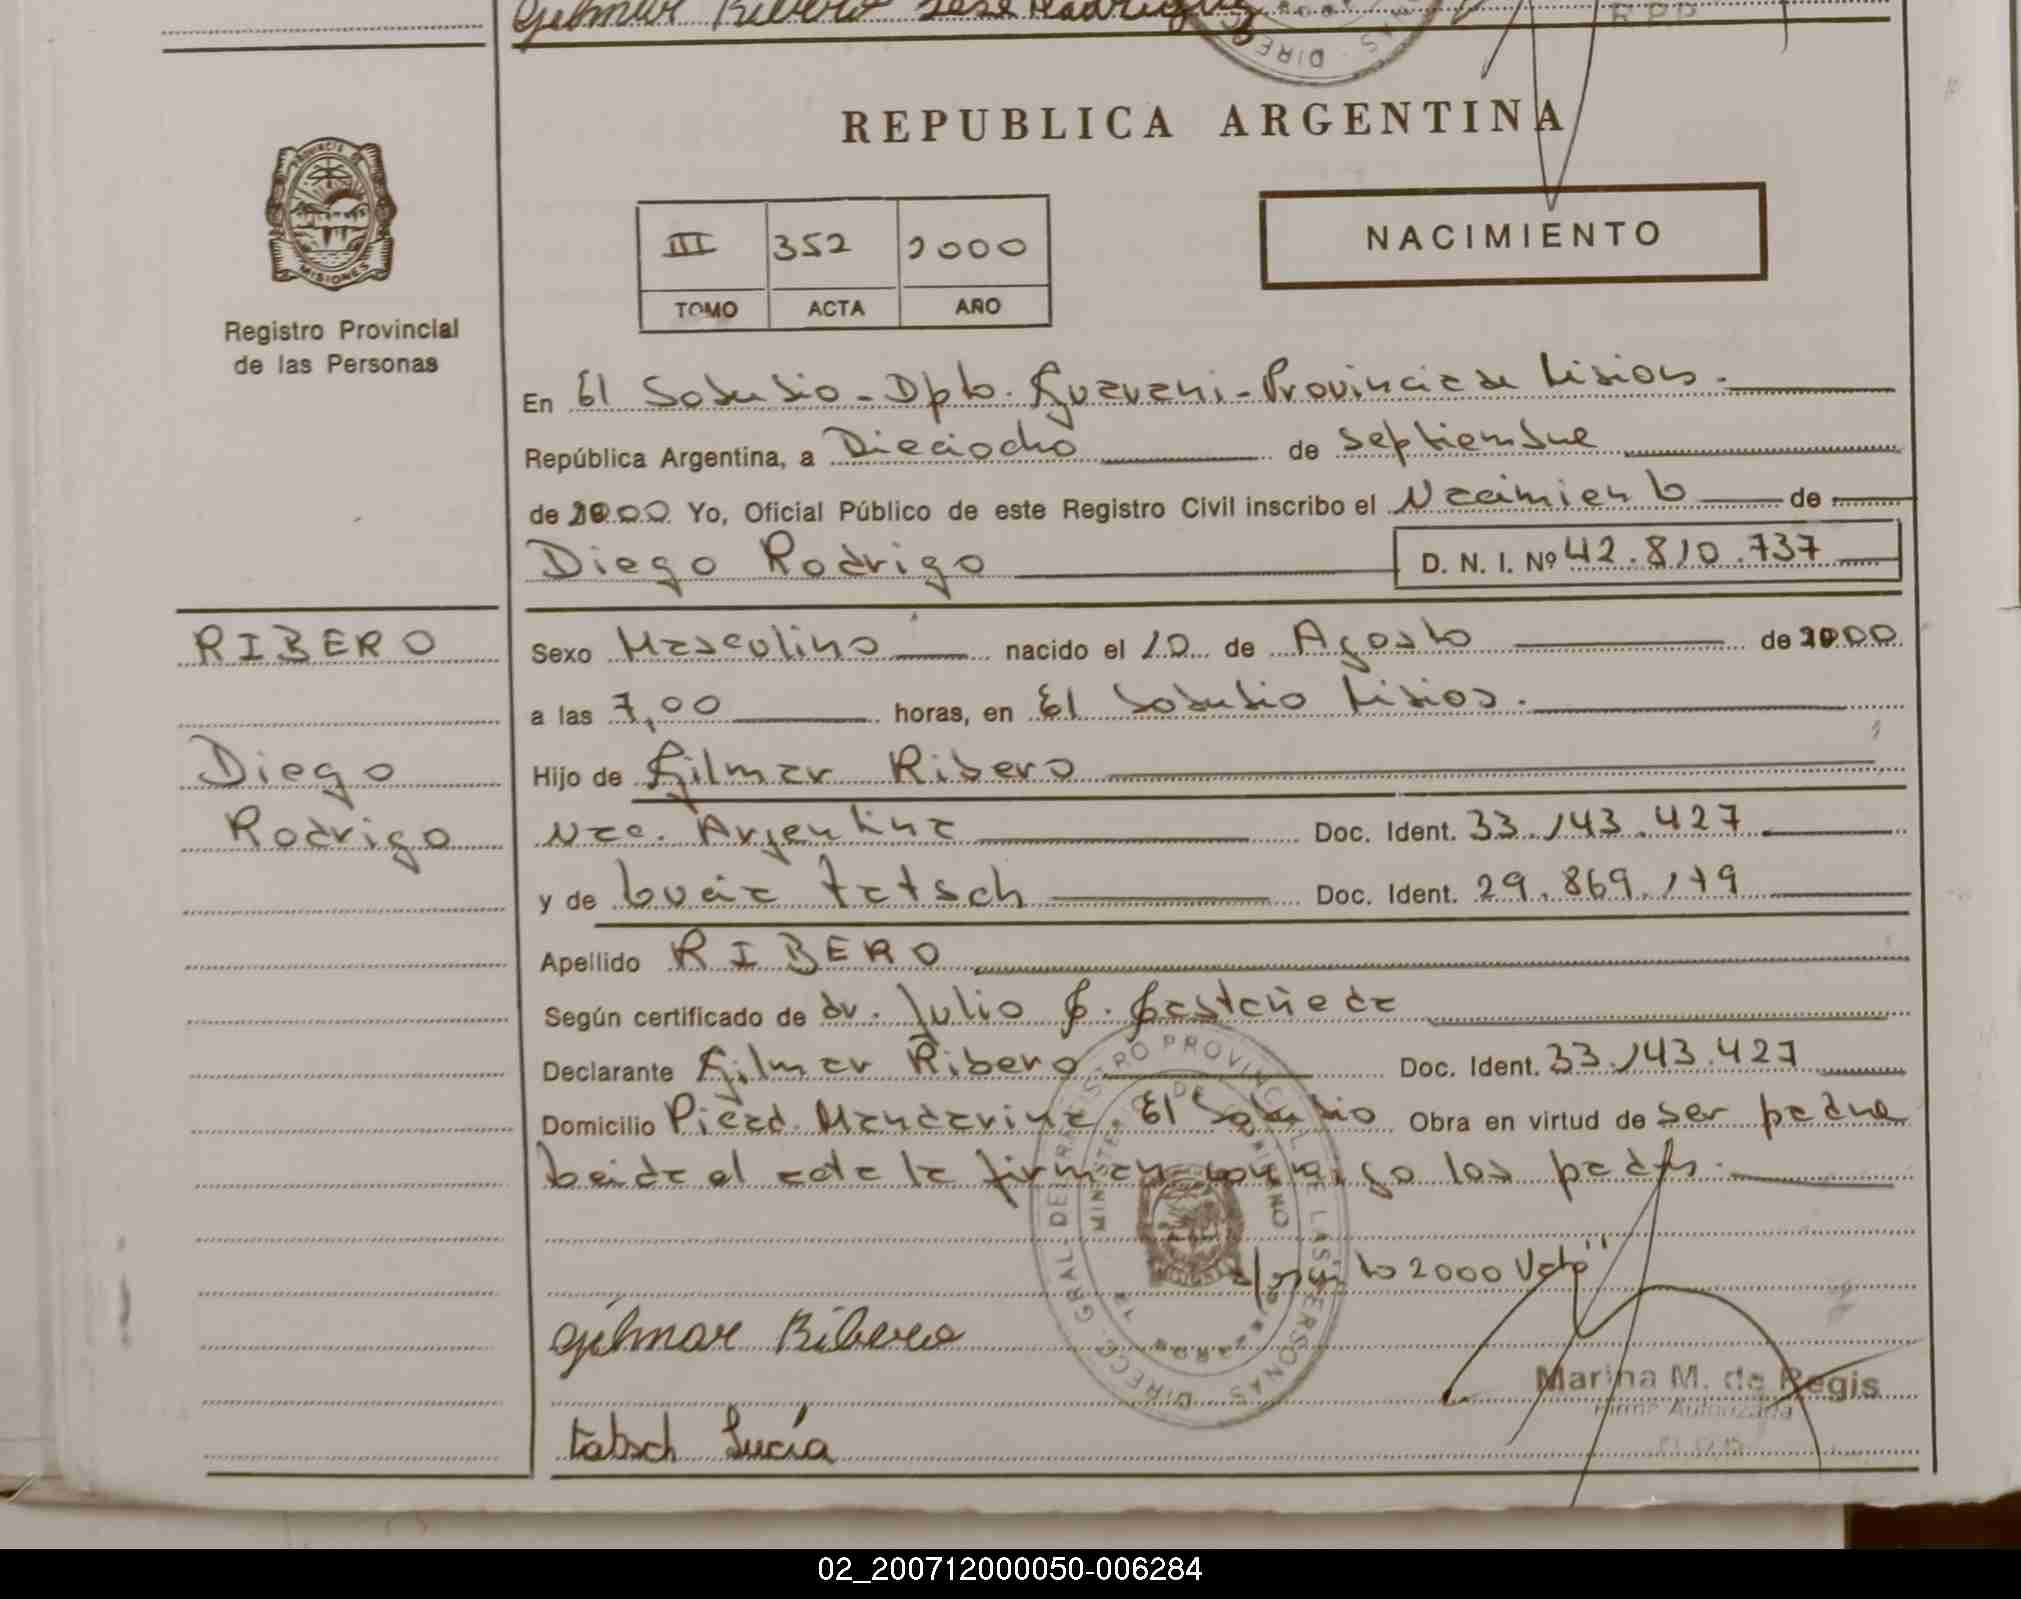 Gilmar Ribero José Rodriguez
DIREC
R.P.P.
REPUBLICA ARGENTINA
PROVINCIA DE
MISIONES
Registro Provincial
de las Personas
III 352 2000
TOMO ACTA AÑO
NACIMIENTO
En El Soberbio - Dpto. Guarani - Provincia de Misiones.
República Argentina, a Dieciocho de septiembre
de 2000 Yo, Oficial Público de este Registro Civil inscribo el Nacimiento de
Diego Rodrigo D. N. I. Nº 42.810.737
RIBERO
Diego
Rodrigo
Sexo Masculino nacido el 10 de Agosto de 2000
a las 7,00 horas, en El Soberbio Misiones.
Hijo de Gilmar Ribero
Nac. Argentina Doc. Ident. 33.143.427
y de Lucia Tatsch Doc. Ident. 29.869.179
Apellido RIBERO
Según certificado de dr. Julio C. Castañeda
Declarante Gilmar Ribero Doc. Ident. 33.143.427
Domicilio Picad. Mandarina El Soberbio Obra en virtud de ser padre
Leida el acta la firman conmigo los padres.
DIRECC. GRAL. DEL REGISTRO PROVINCIAL DE LAS PERSONAS
MINISTERIO DE GOBIERNO
2000 Vale"
Gilmar Ribero
Marina M. de Regis
Firma Autorizada
Tatsch Lucía
02_200712000050-006284